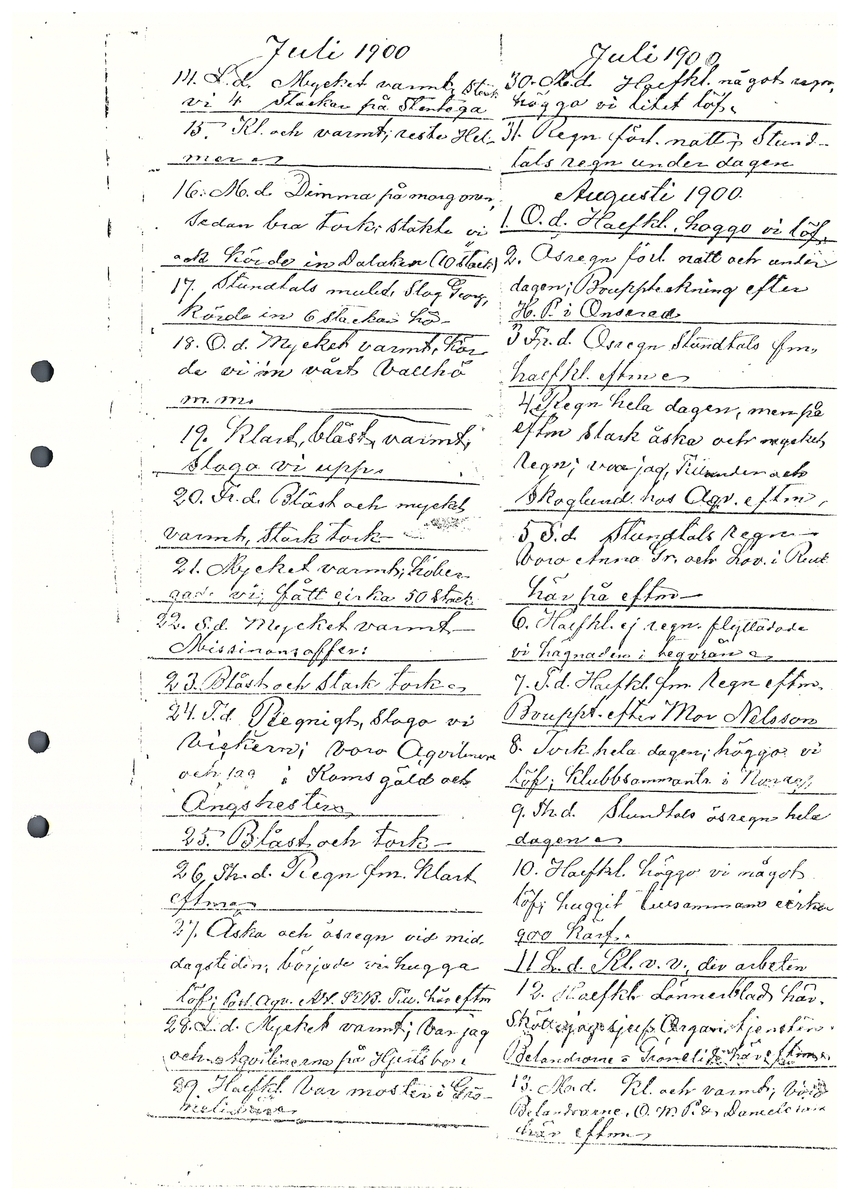 Juli 1900
14. L.d. Mycket varmt, stack
vi 4 stackar på Stentega
15. Kl. och varmt; reste Hel-
mer
16. M.d. Dimma på morgonen,
sedan bra tork; stakte vi
och körde in Dalaken (10 stack)
17. Stundtals mulet, slog Georg,
körde in 6 stackar hö-
18. O.d. Mycket varmt, kör-
de vi in vårt vallhö
m.m.
19. Klart, blåst, varmt;
slogo vi upp.
20. Fr.d. Blåst och mycket
varmt, stark tork-
21. Mycket varmt; höber-
gade vi; fått cirka 50 stack
22. S.d. Mycket varmt
Missionsoffer:
23. Blåst och stark tork
24. T.d. Regnigt, slogo vi
vickern; voro Aqvilinera
och jag i Komsgäld och
Ängshester
25. Blåst och tork-
26. Th.d. Regn fm. klart
eftm
27. Åska och ösregn vid mid-
dagstiden; började vi hugga
löf; Aqv. här eftm
28. L.d. Mycket varmt; var jag
och Aqvilinerna på Hjertsbo
29. Halfkl. Var moster i Grö-

Juli 1900
30. M.d. Halfkl. något regn,
höggo vi litet löf.
31. Regn förl. natt; stund-
tals regn under dagen
Augusti 1900
1. O.d. Halfkl., höggo vi löf,
2. Ösregn förl. natt och under
dagen; Bouppteckning efter
H.P. i Onsered
3 Fr.d. Ösregn stundtals fm,
halfkl. eftm
4. Regn hela dagen, men på
eftm stark åska och mycket
regn; var jag, och
Skoglund hos Aqv. eftm,
5 S.d. Stundtals regn-
Voro Anna Gr. och Lov. i
här på eftm-
6. Halfkl. ej regn. flyttade
vi hägnaden i
7. T.d. Halfkl. fm. regn eftm.
Bouppt. efter Mor Nelsson
8. Tork hela dagen; höggo vi
löf; klubbsammantr. i
9. Th.d. Stundtals ösregn hela
dagen
10. Halfkl. höggo vi något
löf; huggit tillsammans cirka
900 karf.
11 L.d. Kl. v. v., div arbeten
12. Halfkl. Lönnerblad här.
Skötte jag sjup. Organisttjensten.
Belandrarne här eftm.
13. M.d. Kl. och varmt; voro
Belandrarne, O. M. P.
här eftm